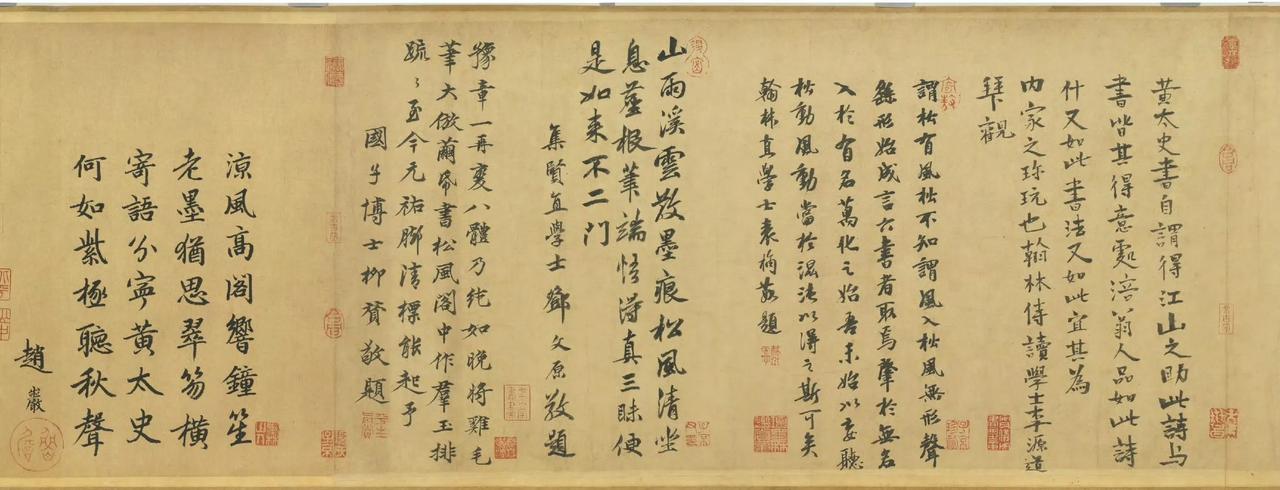 黃太史書自謂得江山之助此詩与
書皆其得意處涪翁人品如此詩
什又如此書法又如此宜其為
內家之珎玩也翰林侍讀學士李源道
拜觀
謂松有風松不知謂風入松風無形聲
繇形始成言六書者取焉肇於無名
入於有名萬化之始吾未始以妄聽
松動風動當於濕法以得之斯可矣
翰林直學士袁桷敬題
山雨溪雲散墨痕松風清坐
息塵根筆端悟得真三昧便
是如来不二門
集賢直學士鄧文原敬題
豫章一再變八體乃純如晚將雞毛
筆大倣繭帋書松風閣中作羣玉排
疏〻至今元祐腳清標能起予
國子博士柳貫敬題
涼風高閣響鐘笙
老墨猶思翠笏橫
寄語分寧黃太史
何如紫極聽秋聲
趙巖